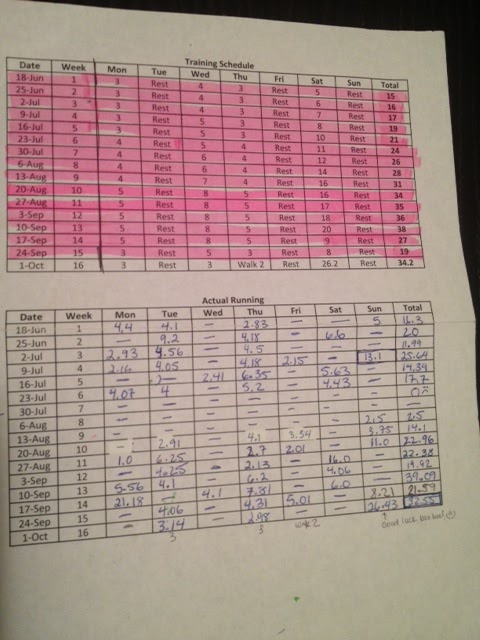 Training Schedule
Date Week Mon Tue Wed Thu Fri Sat Sun Total
18-Jun 1 3 Rest 4 3 Rest 5 Rest 15
25-Jun 2 3 Rest 4 3 Rest 6 Rest 16
2-Jul 3 3 Rest 4 3 Rest 7 Rest 17
9-Jul 4 3 Rest 5 3 Rest 8 Rest 19
16-Jul 5 3 Rest 5 3 Rest 10 Rest 21
23-Jul 6 4 Rest 5 4 Rest 11 Rest 24
30-Jul 7 4 Rest 6 4 Rest 12 Rest 26
6-Aug 8 4 Rest 6 4 Rest 14 Rest 28
13-Aug 9 4 Rest 7 4 Rest 16 Rest 31
20-Aug 10 5 Rest 8 5 Rest 16 Rest 34
27-Aug 11 5 Rest 8 5 Rest 17 Rest 35
3-Sep 12 5 Rest 8 5 Rest 18 Rest 36
10-Sep 13 5 Rest 8 5 Rest 20 Rest 38
17-Sep 14 5 Rest 8 5 Rest 9 Rest 27
24-Sep 15 3 Rest 5 3 Rest 8 Rest 19
1-Oct 16 3 Rest 3 Walk 2 Rest 26.2 Rest 34.2
Actual Running
Date Week Mon Tue Wed Thu Fri Sat Sun Total
18-Jun 1 4.4 4.1 — 2.83 — — 5 16.3
25-Jun 2 — 9.2 — 4.18 — 6.6 — 20
2-Jul 3 2.93 4.56 — 4.5 — — — 11.99
9-Jul 4 2.16 4.05 — 4.18 2.15 — 13.1 25.64
16-Jul 5 — — 2.41 6.35 — 5.63 — 14.39
23-Jul 6 4.07 4 — 5.2 — 4.43 — 17.7
30-Jul 7 — — — — — — — 0
6-Aug 8 — — — — — — 2.5 2.5
13-Aug 9 — 2.91 — 4.1 3.54 — 3.75 14.1
20-Aug 10 1.0 6.25 — 2.7 2.01 — 11.0 22.96
27-Aug 11 — 4.25 — 2.13 — 16.0 — 22.38
3-Sep 12 5.56 4.1 — 6.2 — 4.06 — 19.92
10-Sep 13 21.18 — 4.1 7.81 — 6.0 — 39.09
17-Sep 14 — 4.06 — 4.31 5.01 — 8.21 21.59
24-Sep 15 — 3.14 — 2.98 — — 26.43 32.55
1-Oct 16
3 3 walk 2 Good luck